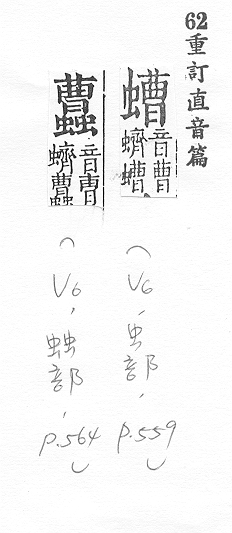 62重訂直音篇
螬
音曹
蠐螬
(V6,虫部,p.559)
音曹
蠐
(V6,䖵部,p.564)